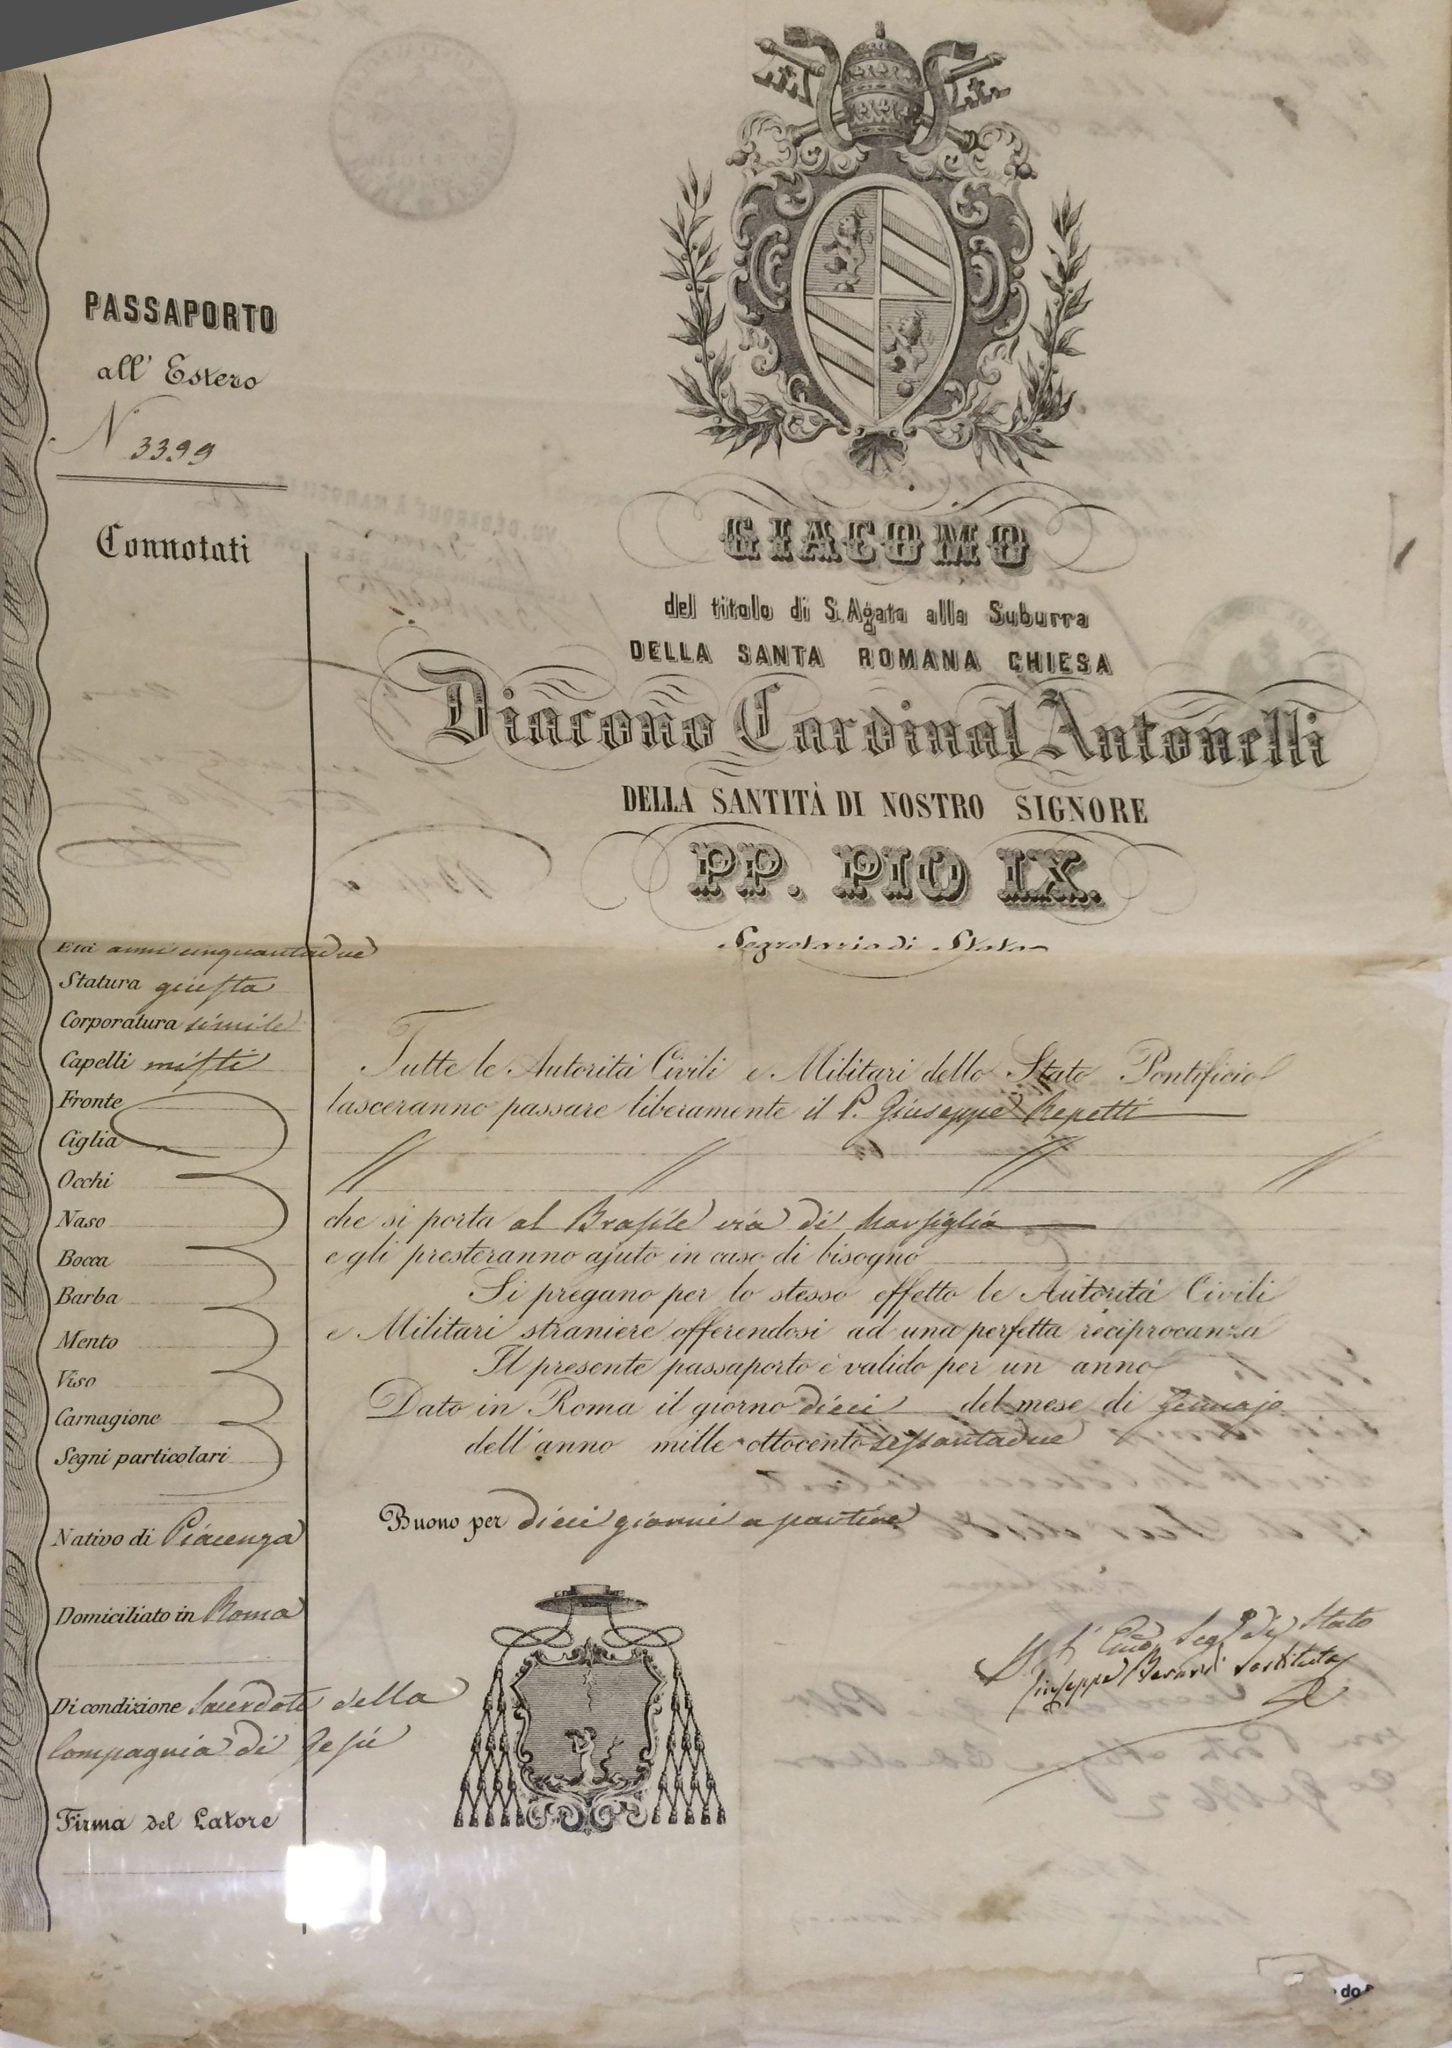 PASSAPORTO
all' Estero
N 3399
Connotati
GIACOMO
del titolo di S. Agata alla Suburra
DELLA SANTA ROMANA CHIESA
Diacono Cardinal Antonelli
DELLA SANTITÀ DI NOSTRO SIGNORE
PP. PIO IX.
Segretario di Stato
Età anni cinquantadue
Statura giusta
Corporatura simile
Capelli misti
Fronte
Ciglia
Occhi
Naso
Bocca
Barba
Mento
Viso
Carnagione
Segni particolari
Nativo di Piacenza
Domiciliato in Roma
Di condizione Sacerdote della
Compagnia di Gesù
Firma del Latore
Tutte le Autorità Civili e Militari dello Stato Pontificio
lasceranno passare liberamente il P. Giuseppe Repetti
che si porta al Brasile via di Marsiglia
e gli presteranno ajuto in caso di bisogno
Si pregano per lo stesso effetto le Autorità Civili
e Militari straniere offerendosi ad una perfetta reciprocanza
Il presente passaporto è valido per un anno
Dato in Roma il giorno dieci del mese di Gennajo
dell'anno mille ottocento sessantadue
Buono per dieci giorni a partire
Segr di Stato
Giuseppe Berardi Sostituto
do